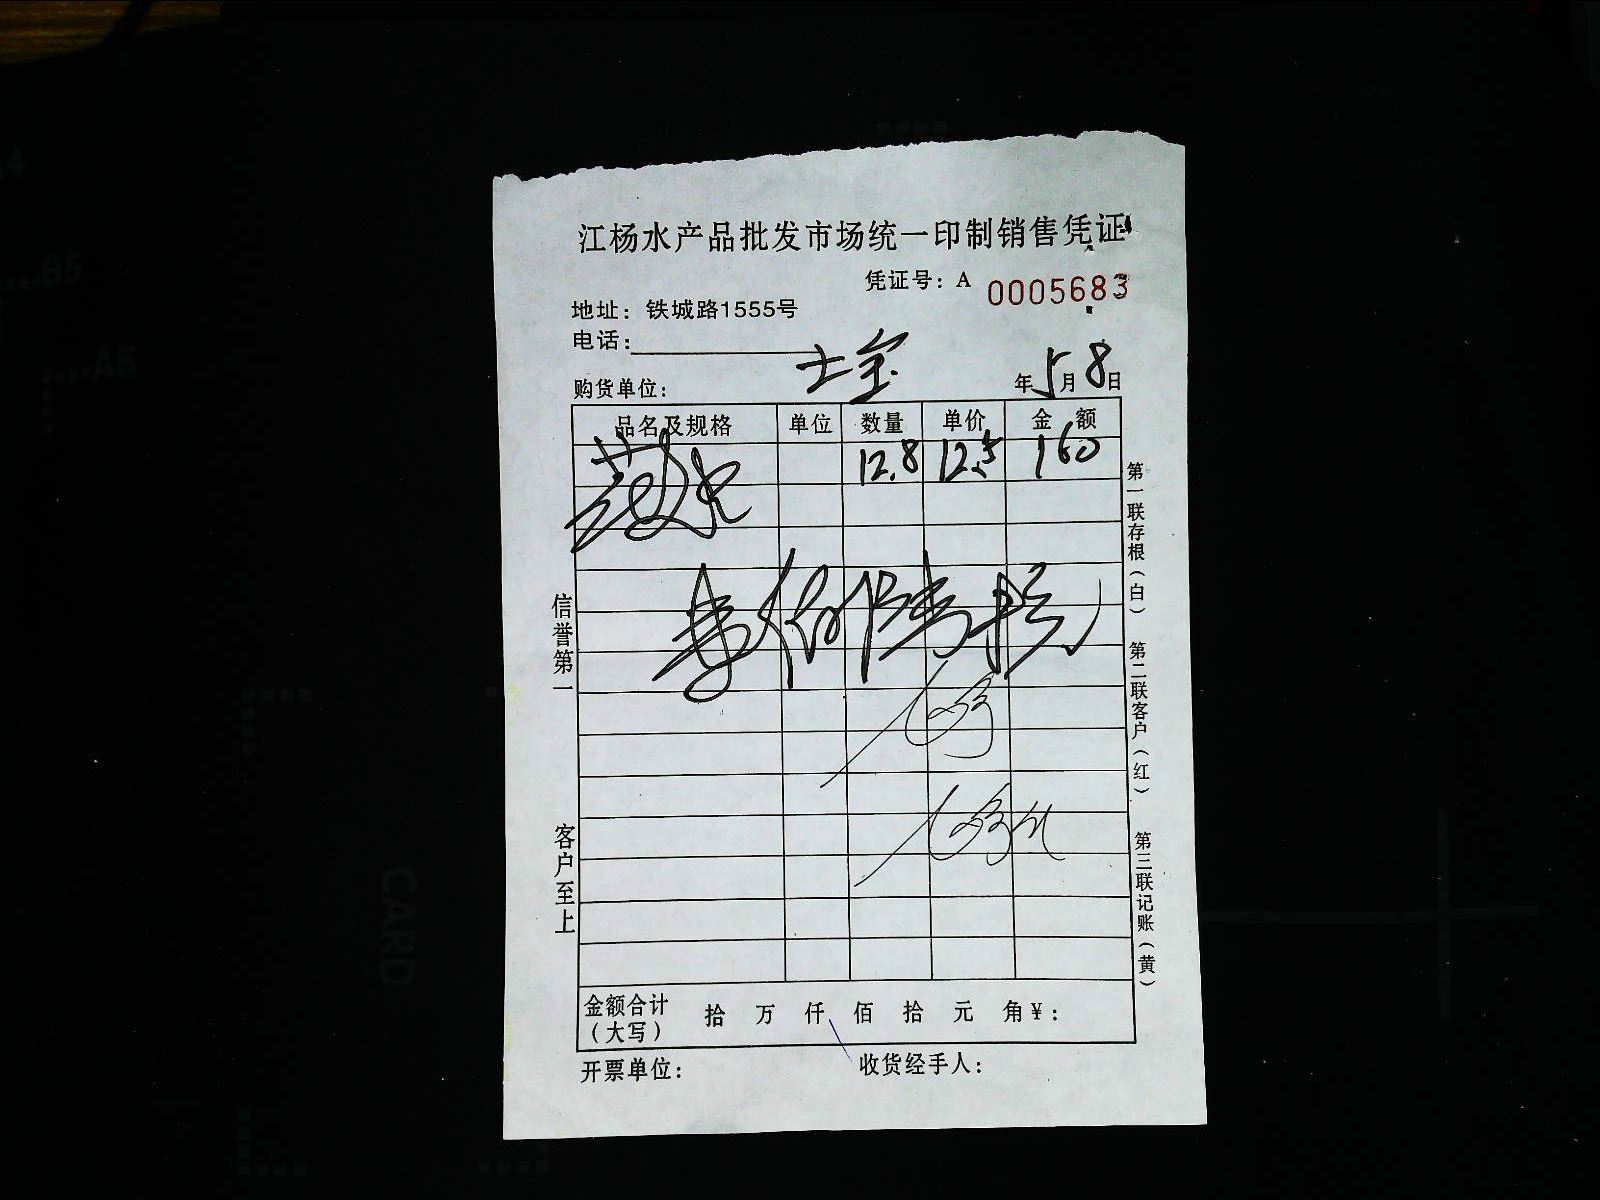 江杨水产品批发市场统一印制销售凭证
凭证号：A 0005683
地址：铁城路1555号
电话：
购货单位： 士宝 年5月8日
品名及规格 单位 数量 单价 金额
12.8 12.5 160
信誉第一
客户至上
第一联存根（白）
第二联客户（红）
第三联记账（黄）
金额合计（大写） 拾 万 仟 佰 拾 元 角￥：
开票单位： 收货经手人：